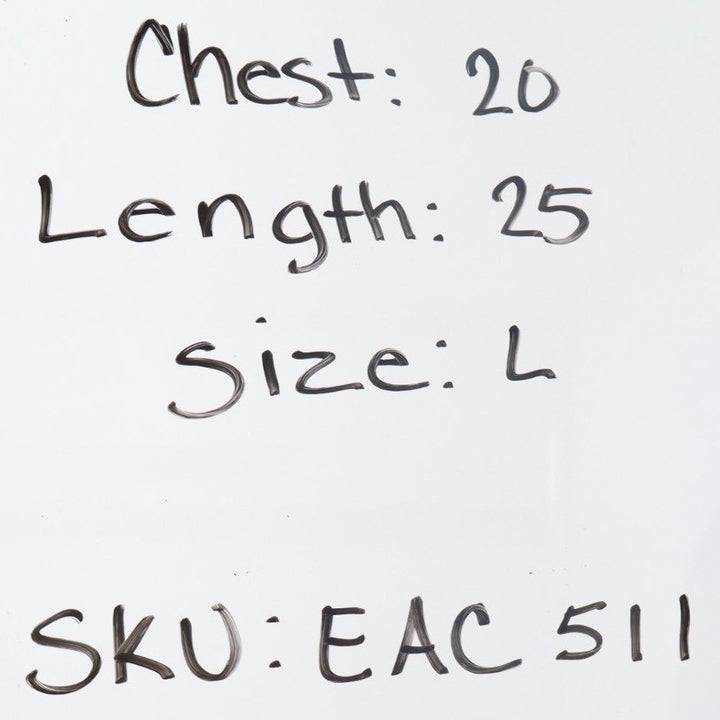 Chest: 20
Length: 25
Size: L
SKU: EAC 511